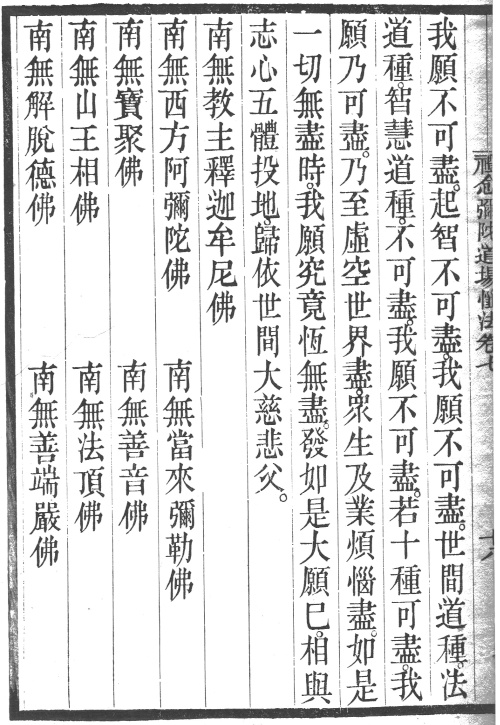 禮念彌陀道場懺法卷七
十八
我願不可盡。起智不可盡。我願不可盡。世間道種。法
道種。智慧道種。不可盡。我願不可盡。若十種可盡。我
願乃可盡。乃至虛空世界盡。眾生及業煩惱盡。如是
一切無盡時。我願究竟恆無盡。發如是大願已。相與
志心五體投地。歸依世間大慈悲父。
南無教主釋迦牟尼佛
南無西方阿彌陀佛　南無當來彌勒佛
南無寶聚佛　南無善音佛
南無山王相佛　南無法頂佛
南無解脫德佛　南無善端嚴佛